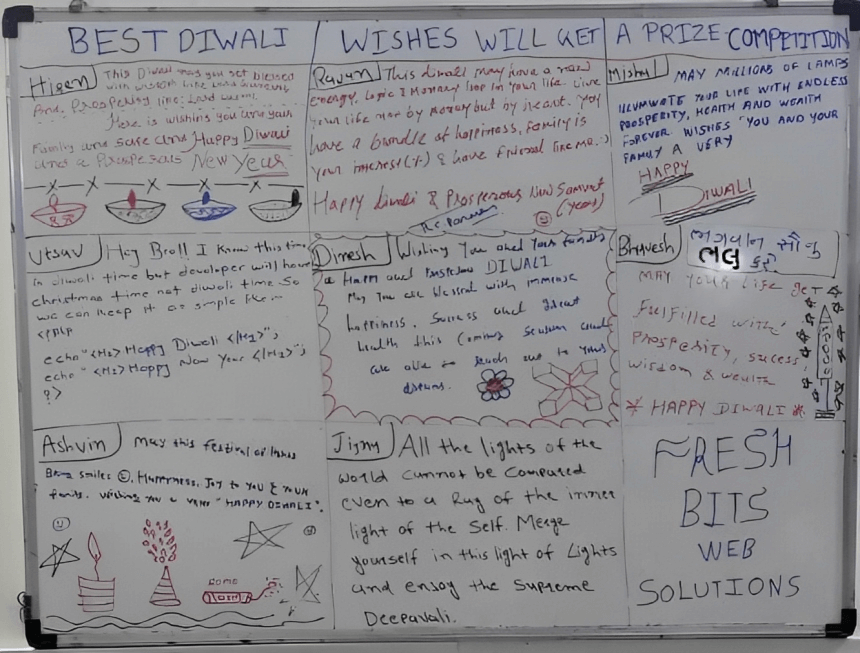 BEST DIWALI / WISHES WILL GET A PRIZE COMPETITION
Hiren
This Diwali may you get blessed
with wisdom like Lord
And Prosperity like Lord
Here is wishing you and your
Family and safe and Happy Diwali
and a Prosperous New Year
Ravan
This diwali may have a new
energy, Logic & Money loop in your life. Live
your life not by Money but by heart. May
have a bundle of happiness, family is
your interest(%) & have friend like me. :)
Happy Diwali & Prosperous New Samvat
(year)
Mishul
MAY MILLIONS OF LAMPS
ILLUMINATE YOUR LIFE WITH ENDLESS
PROSPERITY, HEALTH AND WEALTH
FOREVER. WISHES YOU AND YOUR
FAMILY A VERY
HAPPY
DIWALI
Utsav
Hey Bro!! I know this time
in diwali time but developer will have
christmas time not diwali time. So
we can keep it as simple like..
<?php
echo "<H1> Happy Diwali </H1>";
echo "<H1> Happy New Year </H1>";
?>
Dinesh
Wishing You and Your family
a Happy and Prosperous DIWALI
May you are blessed with immense
happiness, success and great
health this coming season and
are able to reach out to your
dreams.
Bhavesh
ભગવાન સૌનુ
ભલુ કરે
MAY YOUR LIFE GET
Fulfilled with
Prosperity, sucess,
wisdom & wealth
* HAPPY DIWALI *
Ashvin
May this festival of lights
Bring smiles, Happiness, Joy to you & your
family. Wishing you a very "HAPPY DIWALI".
Jigny
All the lights of the
world cannot be compared
even to a Ray of the inner
light of the Self. Merge
yourself in this light of Lights
and enjoy the Supreme
Deepavali.
FRESH
BITS
WEB
SOLUTIONS